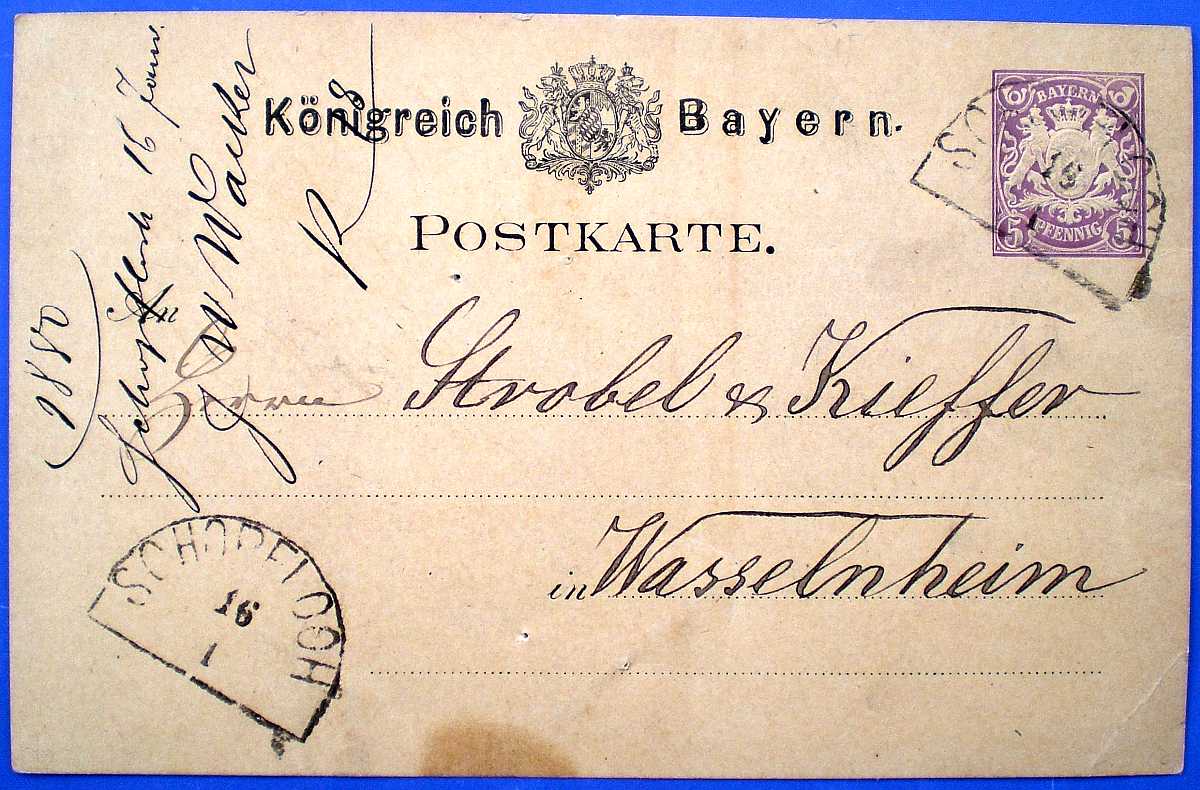 Königreich Bayern.
POSTKARTE.
BAYERN
5 PFENNIG 5
16
1
An
Herrn Strobel & Kieffer
in Wasselnheim
SCHOPFLOCH
16
1
1880
Schopfloch 16 Janr.